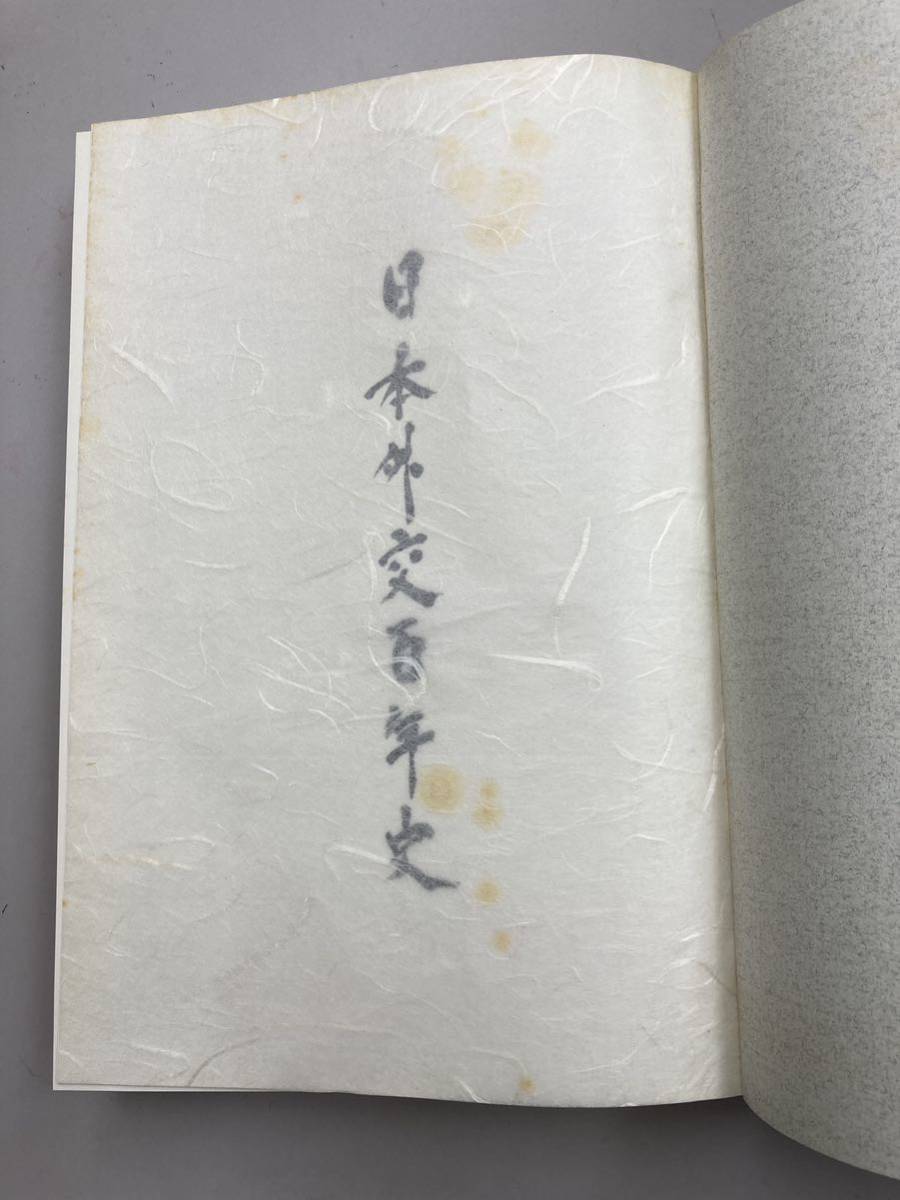 日本外交百年史